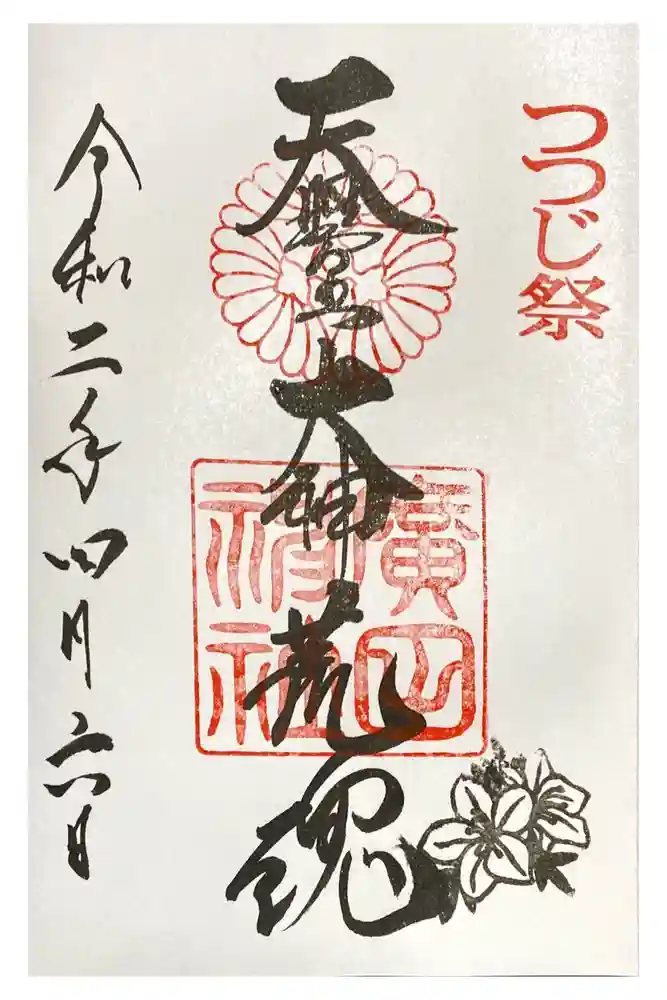 つつじ祭
天照皇大神荒魂
廣田
神社
令和二年四月六日